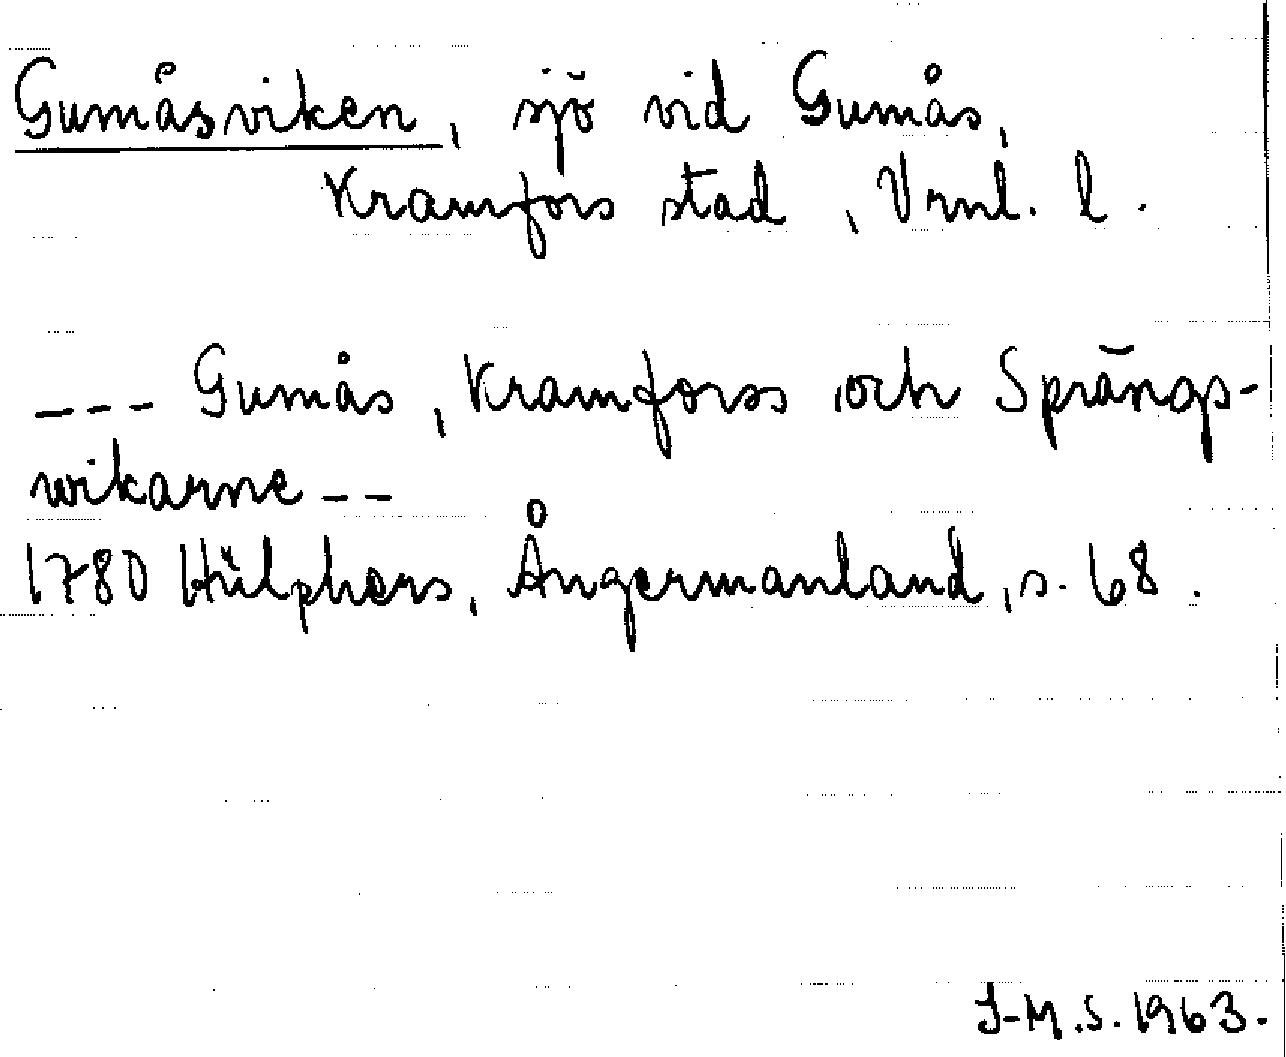 Gumåsviken, sjö vid Gumås,
Kramfors stad, Vrnl. l.
--- Gumås, Kramforss och Sprängs-
wikarne --
1780 Hülphers, Ångermanland, s. 68.
I-M.S. 1963.